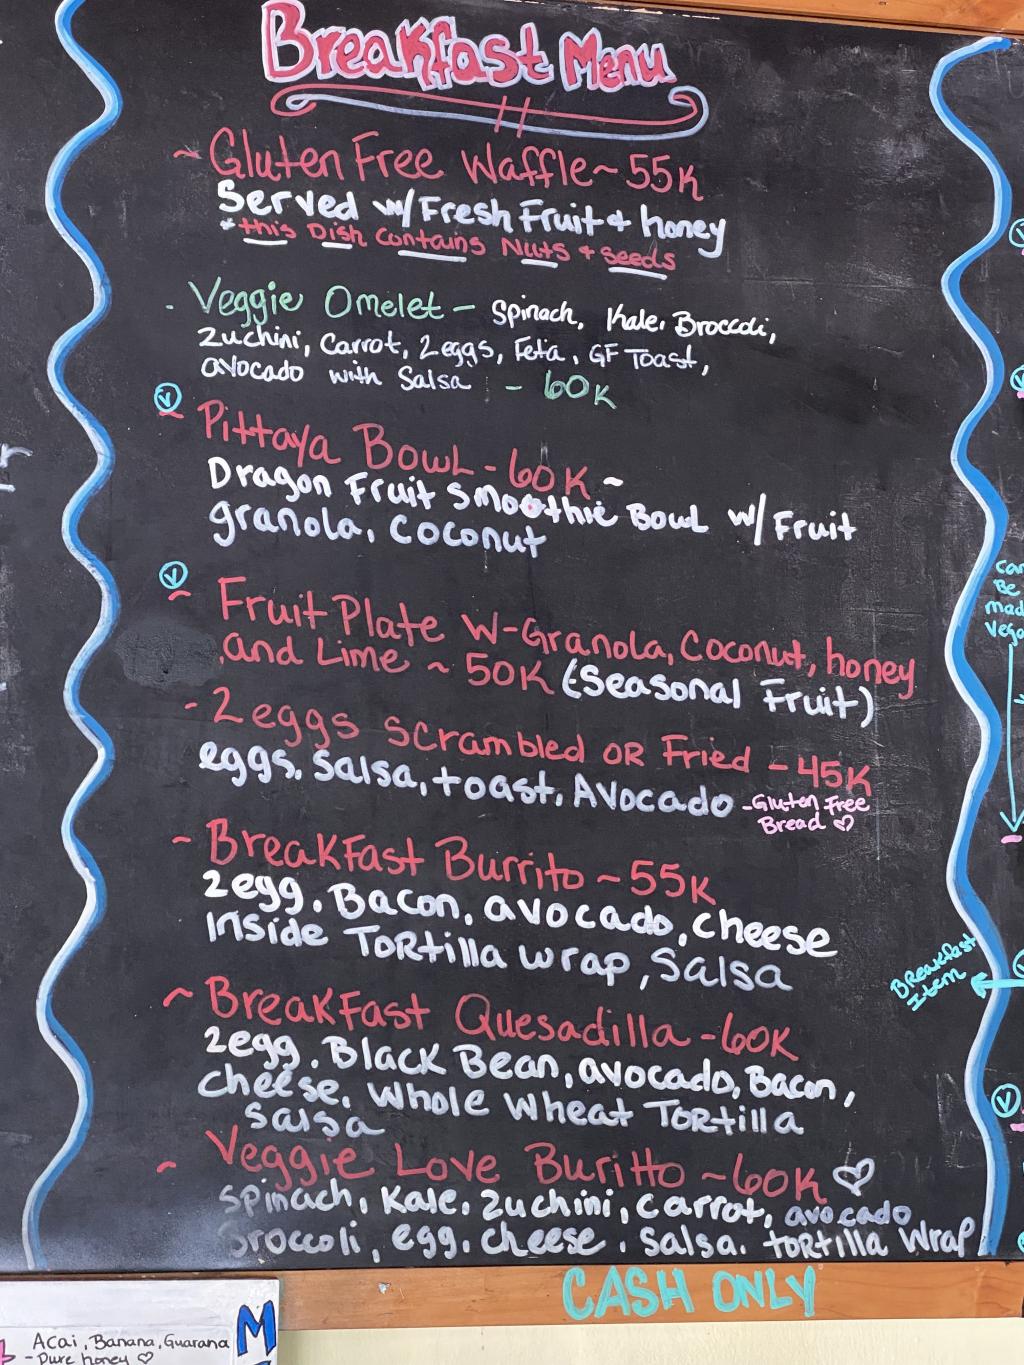 Breakfast Menu
~ Gluten Free Waffle ~ 55K
Served w/ Fresh Fruit + honey
* this Dish contains Nuts + Seeds
- Veggie Omelet - Spinach, Kale, Broccoli,
Zuchini, Carrot, 2 eggs, Feta, GF Toast,
avocado with Salsa - 60K
V
~ Pittaya Bowl - 60K ~
Dragon Fruit Smoothie Bowl w/ Fruit
granola, coconut
V
~ Fruit Plate W-Granola, Coconut, honey
and Lime ~ 50K (Seasonal Fruit)
- 2 eggs scrambled OR Fried - 45K
eggs, salsa, toast, Avocado - Gluten Free
Bread ♡
~ Breakfast Burrito ~ 55K
2 egg, Bacon, avocado, cheese
inside Tortilla wrap, Salsa
~ Breakfast Quesadilla - 60K
2 egg, Black Bean, avocado, Bacon,
cheese, whole wheat Tortilla
salsa
~ Veggie Love Buritto ~ 60K ♡
spinach, Kale, Zuchini, carrot, avocado
Broccoli, egg, cheese, salsa, tortilla wrap
Breakfast
Item
V
CASH ONLY
Acai, Banana, Guarana
- Pure honey ♡
M